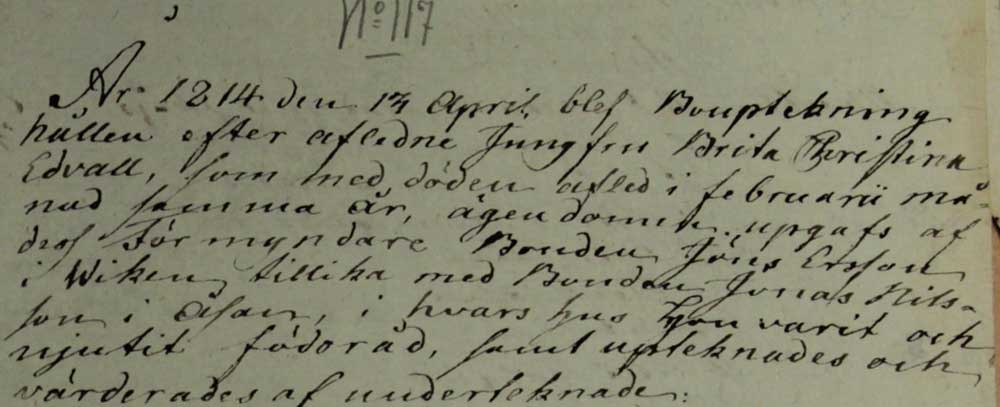 No 117
År 1814 den 13 April, blef Bouptekning
hållen efter afledne Jungfru Brita Christina
Edvall, som med döden afled i februarii må-
nad samma år, ägendomen upgafs af
dess Förmyndare Bonden Jöns Ersson
i Wiken tillika med Bonden Jonas Nils-
son i Åsan, i hvars hus Hon varit och
njutit födoråd, samt upteknades och
värderades af underteknade: